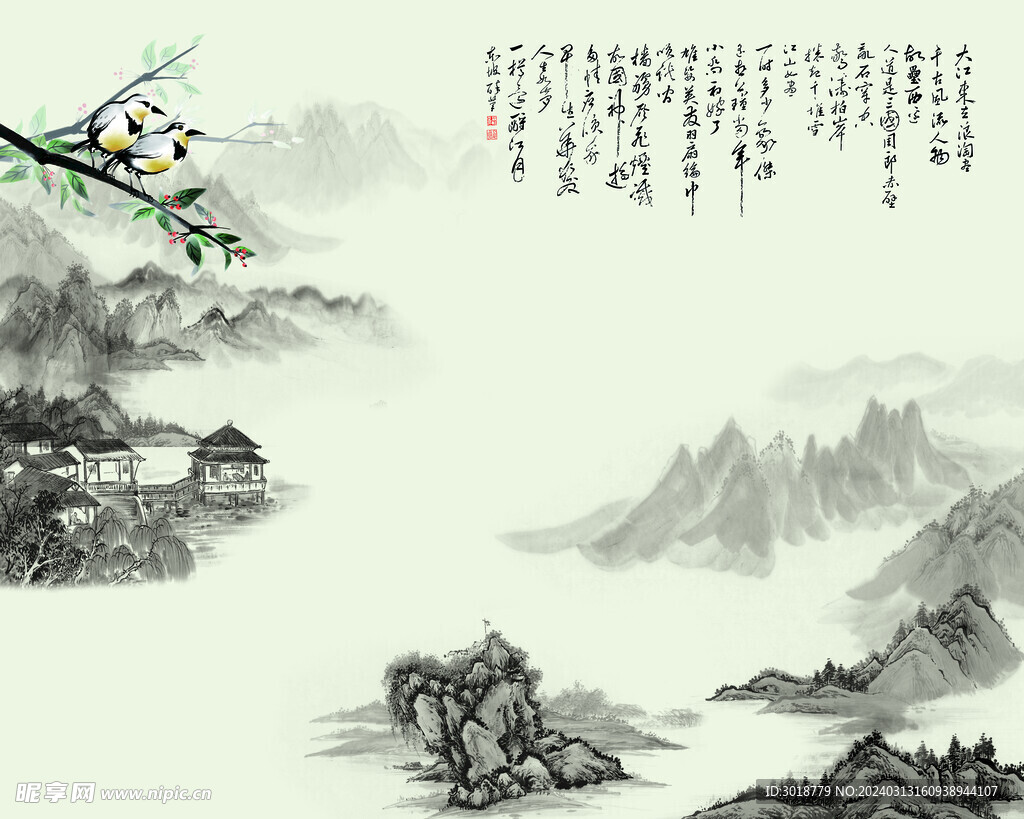 大江東去浪淘尽
千古風流人物
故壘西边
人道是三國周郎赤壁
乱石穿空
驚濤拍岸
捲起千堆雪
江山如畫
一时多少豪傑
遥想公瑾当年
小乔初嫁了
雄姿英发羽扇綸巾
樯櫓灰飛煙滅
故國神遊
多情应笑我
早生華髮
人生如梦
一樽还酹江月
昵享网 www.nipic.cn
ID:3018779 NO:20240313160938944107